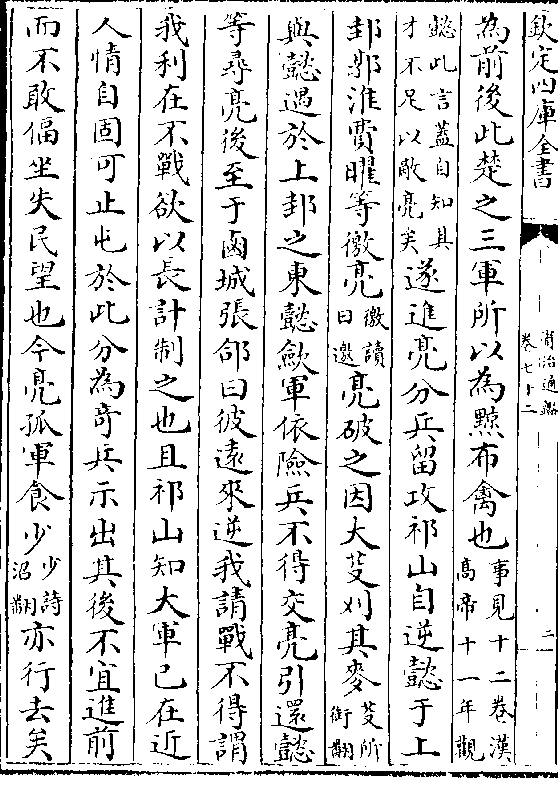 欽定四庫全書
資治通鑑
卷七十二
二
為前後此楚之三軍所以為黥布禽也事見十二卷漢高帝十一年觀
懿此言蓋自知其才不足以敵亮矣遂進亮分兵留攻祁山自逆懿于上
邽郭淮費曜等徼亮徼讀曰邀亮破之因大芟刈其麥芟所銜翻
與懿遇於上邽之東懿斂軍依險兵不得交亮引還懿
等尋亮後至于鹵城張郃曰彼遠來逆我請戰不得謂
我利在不戰欲以長計制之也且祁山知大軍已在近
人情自固可止屯於此分為奇兵示出其後不宜進前
而不敢偪坐失民望也今亮孤軍食少少詩沼翻亦行去矣